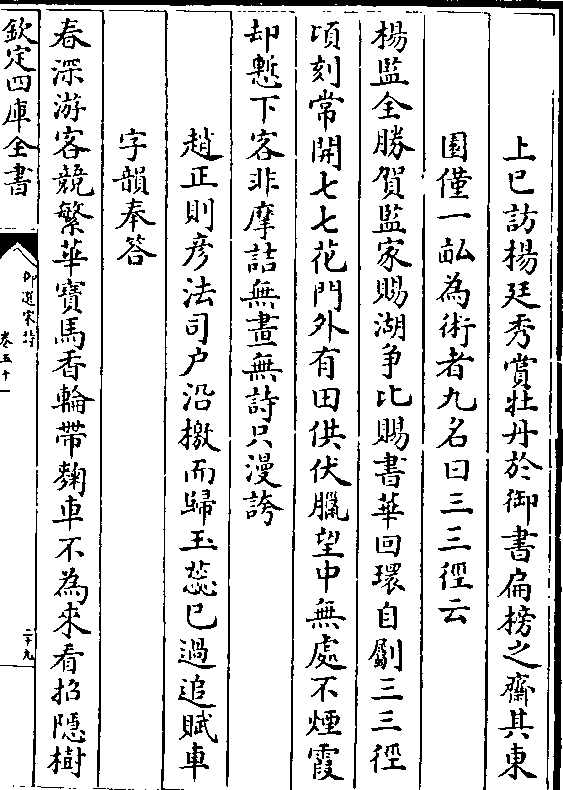 上巳訪楊廷秀賞牡丹於御書扁榜之齋其東
園僅一畆為術者九名曰三三徑云
楊監全勝賀監家賜湖争比賜書華回環自劚三三徑
頃刻常開七七花門外有田供伏臘望中無處不煙霞
却慙下客非摩詰無畫無詩只漫誇
趙正則彦法司户沿檄而歸玉蘂已過追賦車
字韻奉答
春深游客競繁華寶馬香輪帶麴車不為來看招隠樹
欽定四庫全書
御選宋詩
卷五十一
二十九